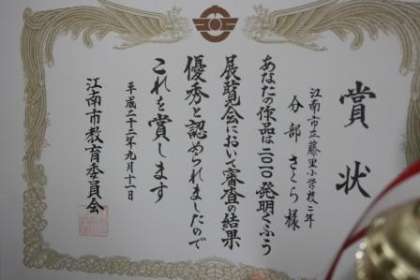 賞状
江南市立藤里小学校二年
分部さくら様
あなたの作品は二〇一〇発明くふう
展覧会において審査の結果
優秀と認められましたので
これを賞します
平成二十二年九月十一日
江南市教育委員会